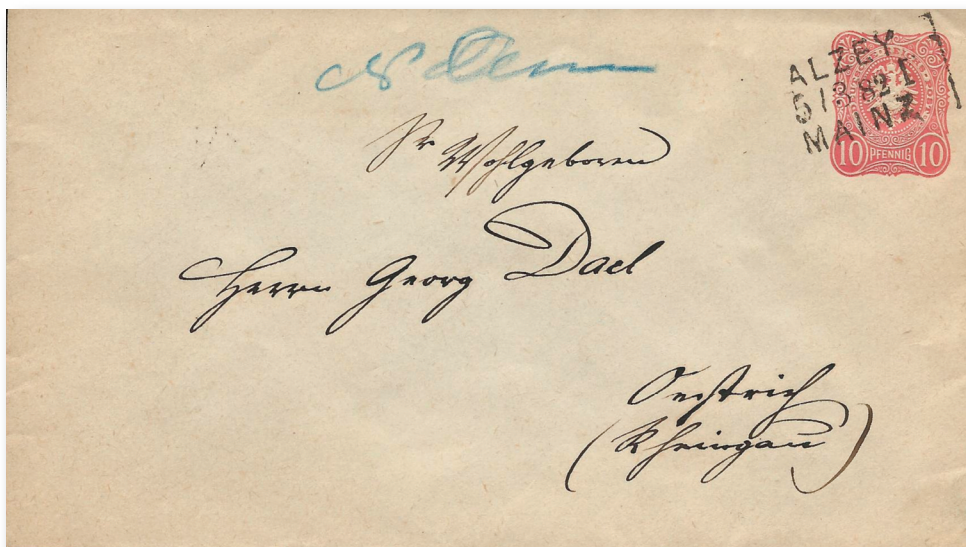 ALZEY
5/3 82 I
MAINZ
10 PFENNIG 10
Sr Wohlgeboren
Herrn Georg Dael
Oestrich
(Rheingau)